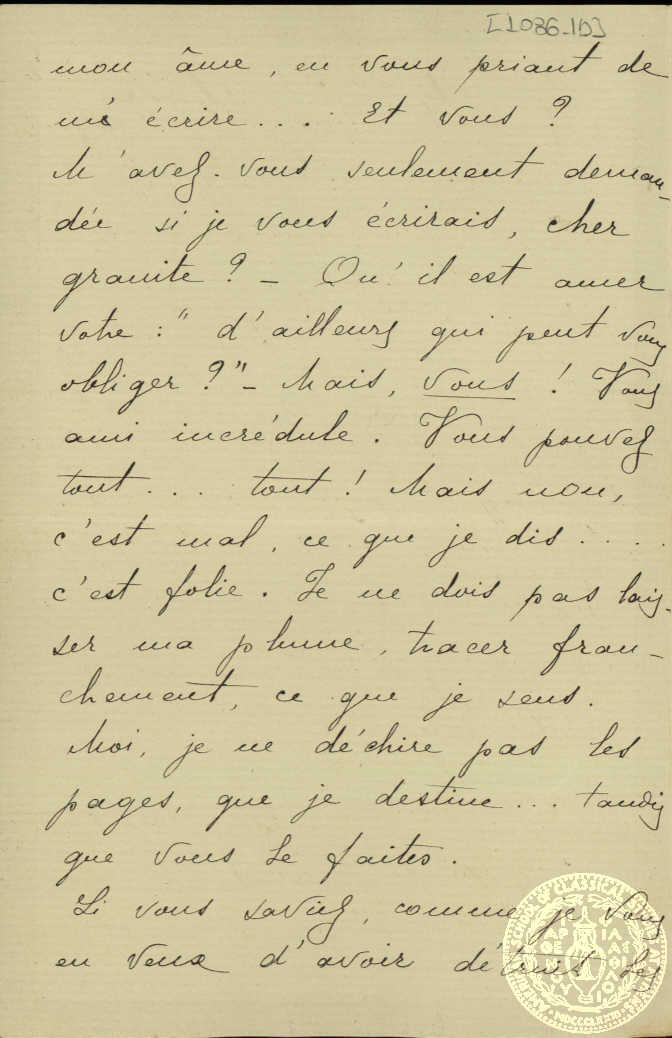 [1086-1D]
mon âme, en vous priant de
m'écrire.... Et vous ?
M'avez-vous seulement deman-
dée si je vous écrirais, cher
granite ? – Qu'il est amer
votre : "d'ailleurs qui peut vous
obliger ?" – Mais, vous ! Vous
ami incrédule. Vous pouvez
tout... tout ! Mais non,
c'est mal, ce que je dis....
c'est folie. Je ne dois pas lais-
ser ma plume, tracer fran-
chement, ce que je sens.
Moi, je ne déchire pas les
pages, que je destine... tandis
que vous le faites.
Si vous saviez, comme je vous
en veux d'avoir détruit les
AMERICAN SCHOOL OF CLASSICAL
MDCCCLXXXI